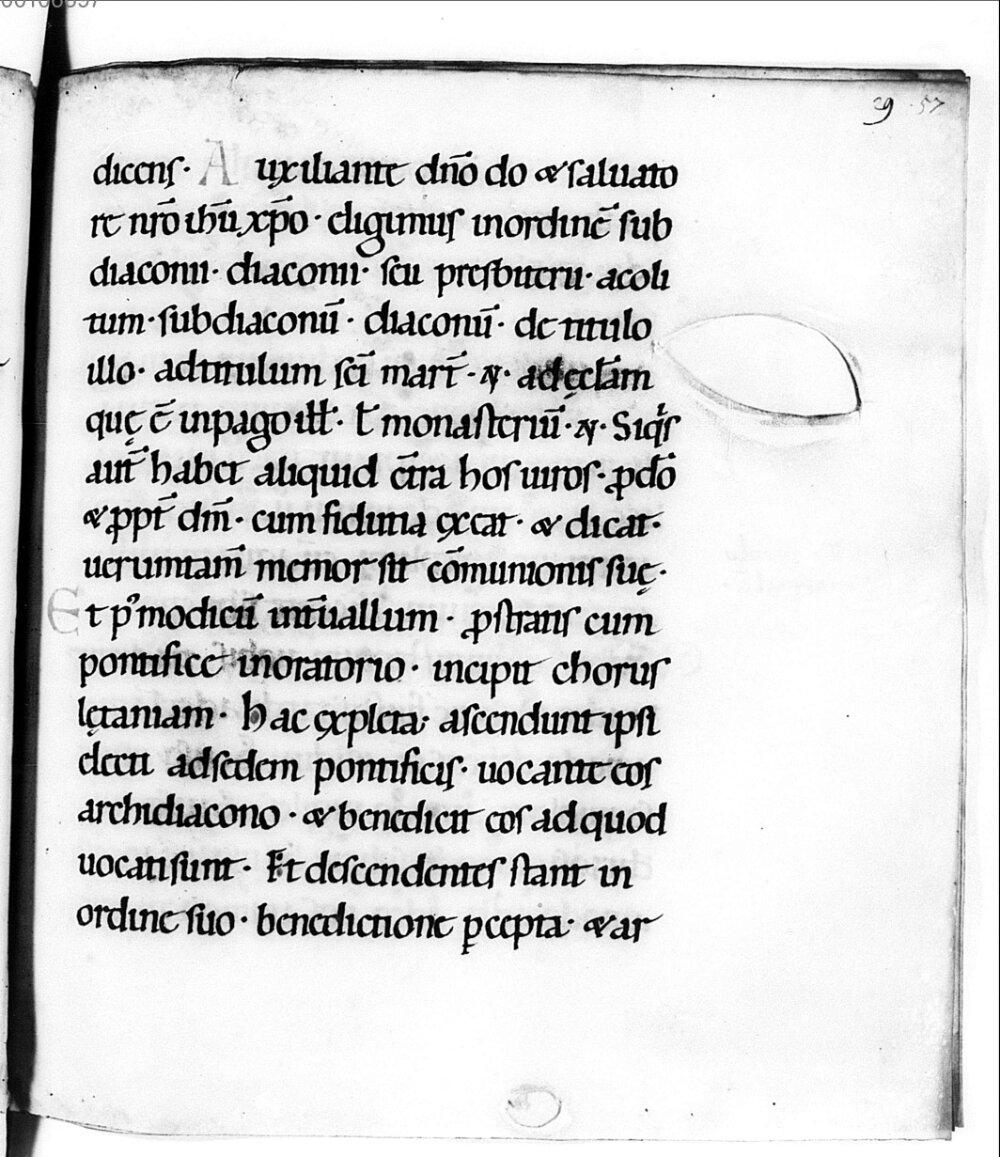 29 · 57
dicens· Auxiliante dn̄o do &saluato
re nr̄o ih̄u xp̄o· eligimus inordinē sub
diaconii· diaconii· seu presbiterii· acoli
tum· subdiaconū· diaconū· de titulo
illo· adtitulum sc̄i mart̄· adęcl̄am
quę ē inpago ill̄· ł monasteriū· Siq̇s
aut̄ habet aliquid c̄tra hos uiros· ꝓ dō
& ꝓpt̄ dm̄· cum fiducia ęxeat· & dicat·
uerumtam̄ memor sit cōmunionis suę·
Et pꝰ modicū int̄uallum· ꝓstrans cum
pontifice inoratorio· incipit chorus
lętaniam· hac ęxpleta· ascendunt ipsi
electi adsedem pontificis· uocante eos
archidiacono· & benedicit eos ad quod
uocati sunt· Et descendentes stant in
ordine suo· benedictione ꝑcepta· & ar